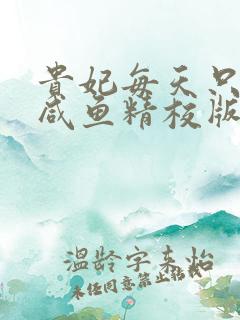 贵妃每天只
咸鱼精校版
温龄字来怡
未经同意禁止转载